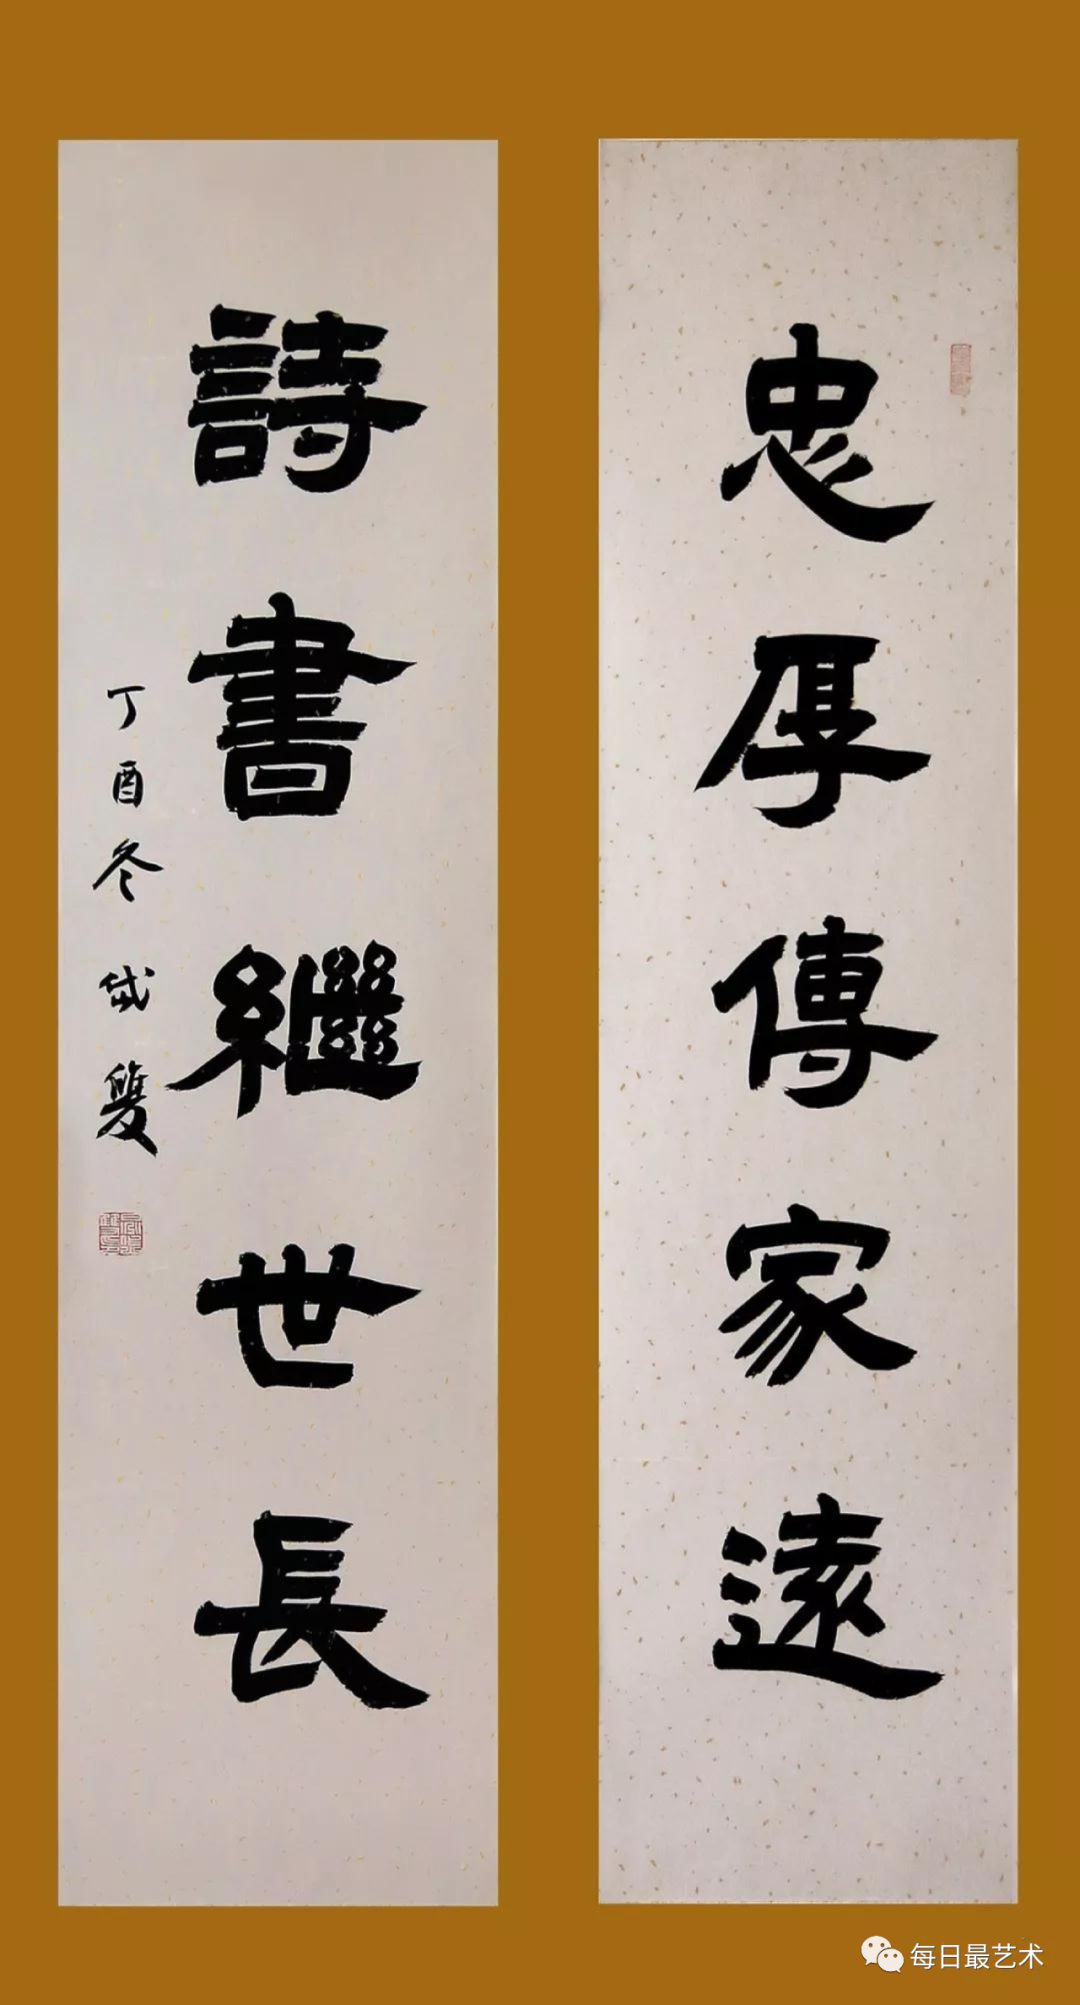 忠厚傳家遠
詩書繼世長
丁酉冬 岱雙
每日最艺术